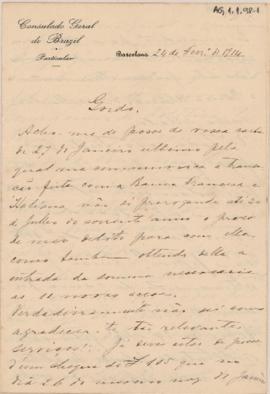 AG.1.1.98-1
Consulado Geral
do Brazil
Particular
Barcelona 24 de Fev.º de 1914
Gordo,
Acho-me de posse de vossa carta
de 27 de Janeiro ultimo pela
qual me a
feita com a Banca Franceza e
Italiana não só até 20
de Julho do corrente anno o prazo
de meu debito para com ella,
como tambem obtendo della a
entrada da somma necessaria
as novas
Verdadeiramente não sei como
agradecer-te tão relevantes
serviços! Já deveis estar de posse
d'um cheque de £ 105 que no
dia 26 do mesmo mez de Janeiro